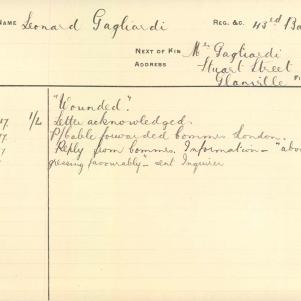 NAME Leonard Gagliardi REG. &C. 43rd Ba
NEXT OF KIN Mrs Gagliardi
ADDRESS Stuart Street
Glanville
"Wounded."
17. 1/L Letter acknowledged.
17 P/bable forwarded Commrs London.
17 Reply from Commrs. Information - "abo
gressing favourably" - sent Inquirer